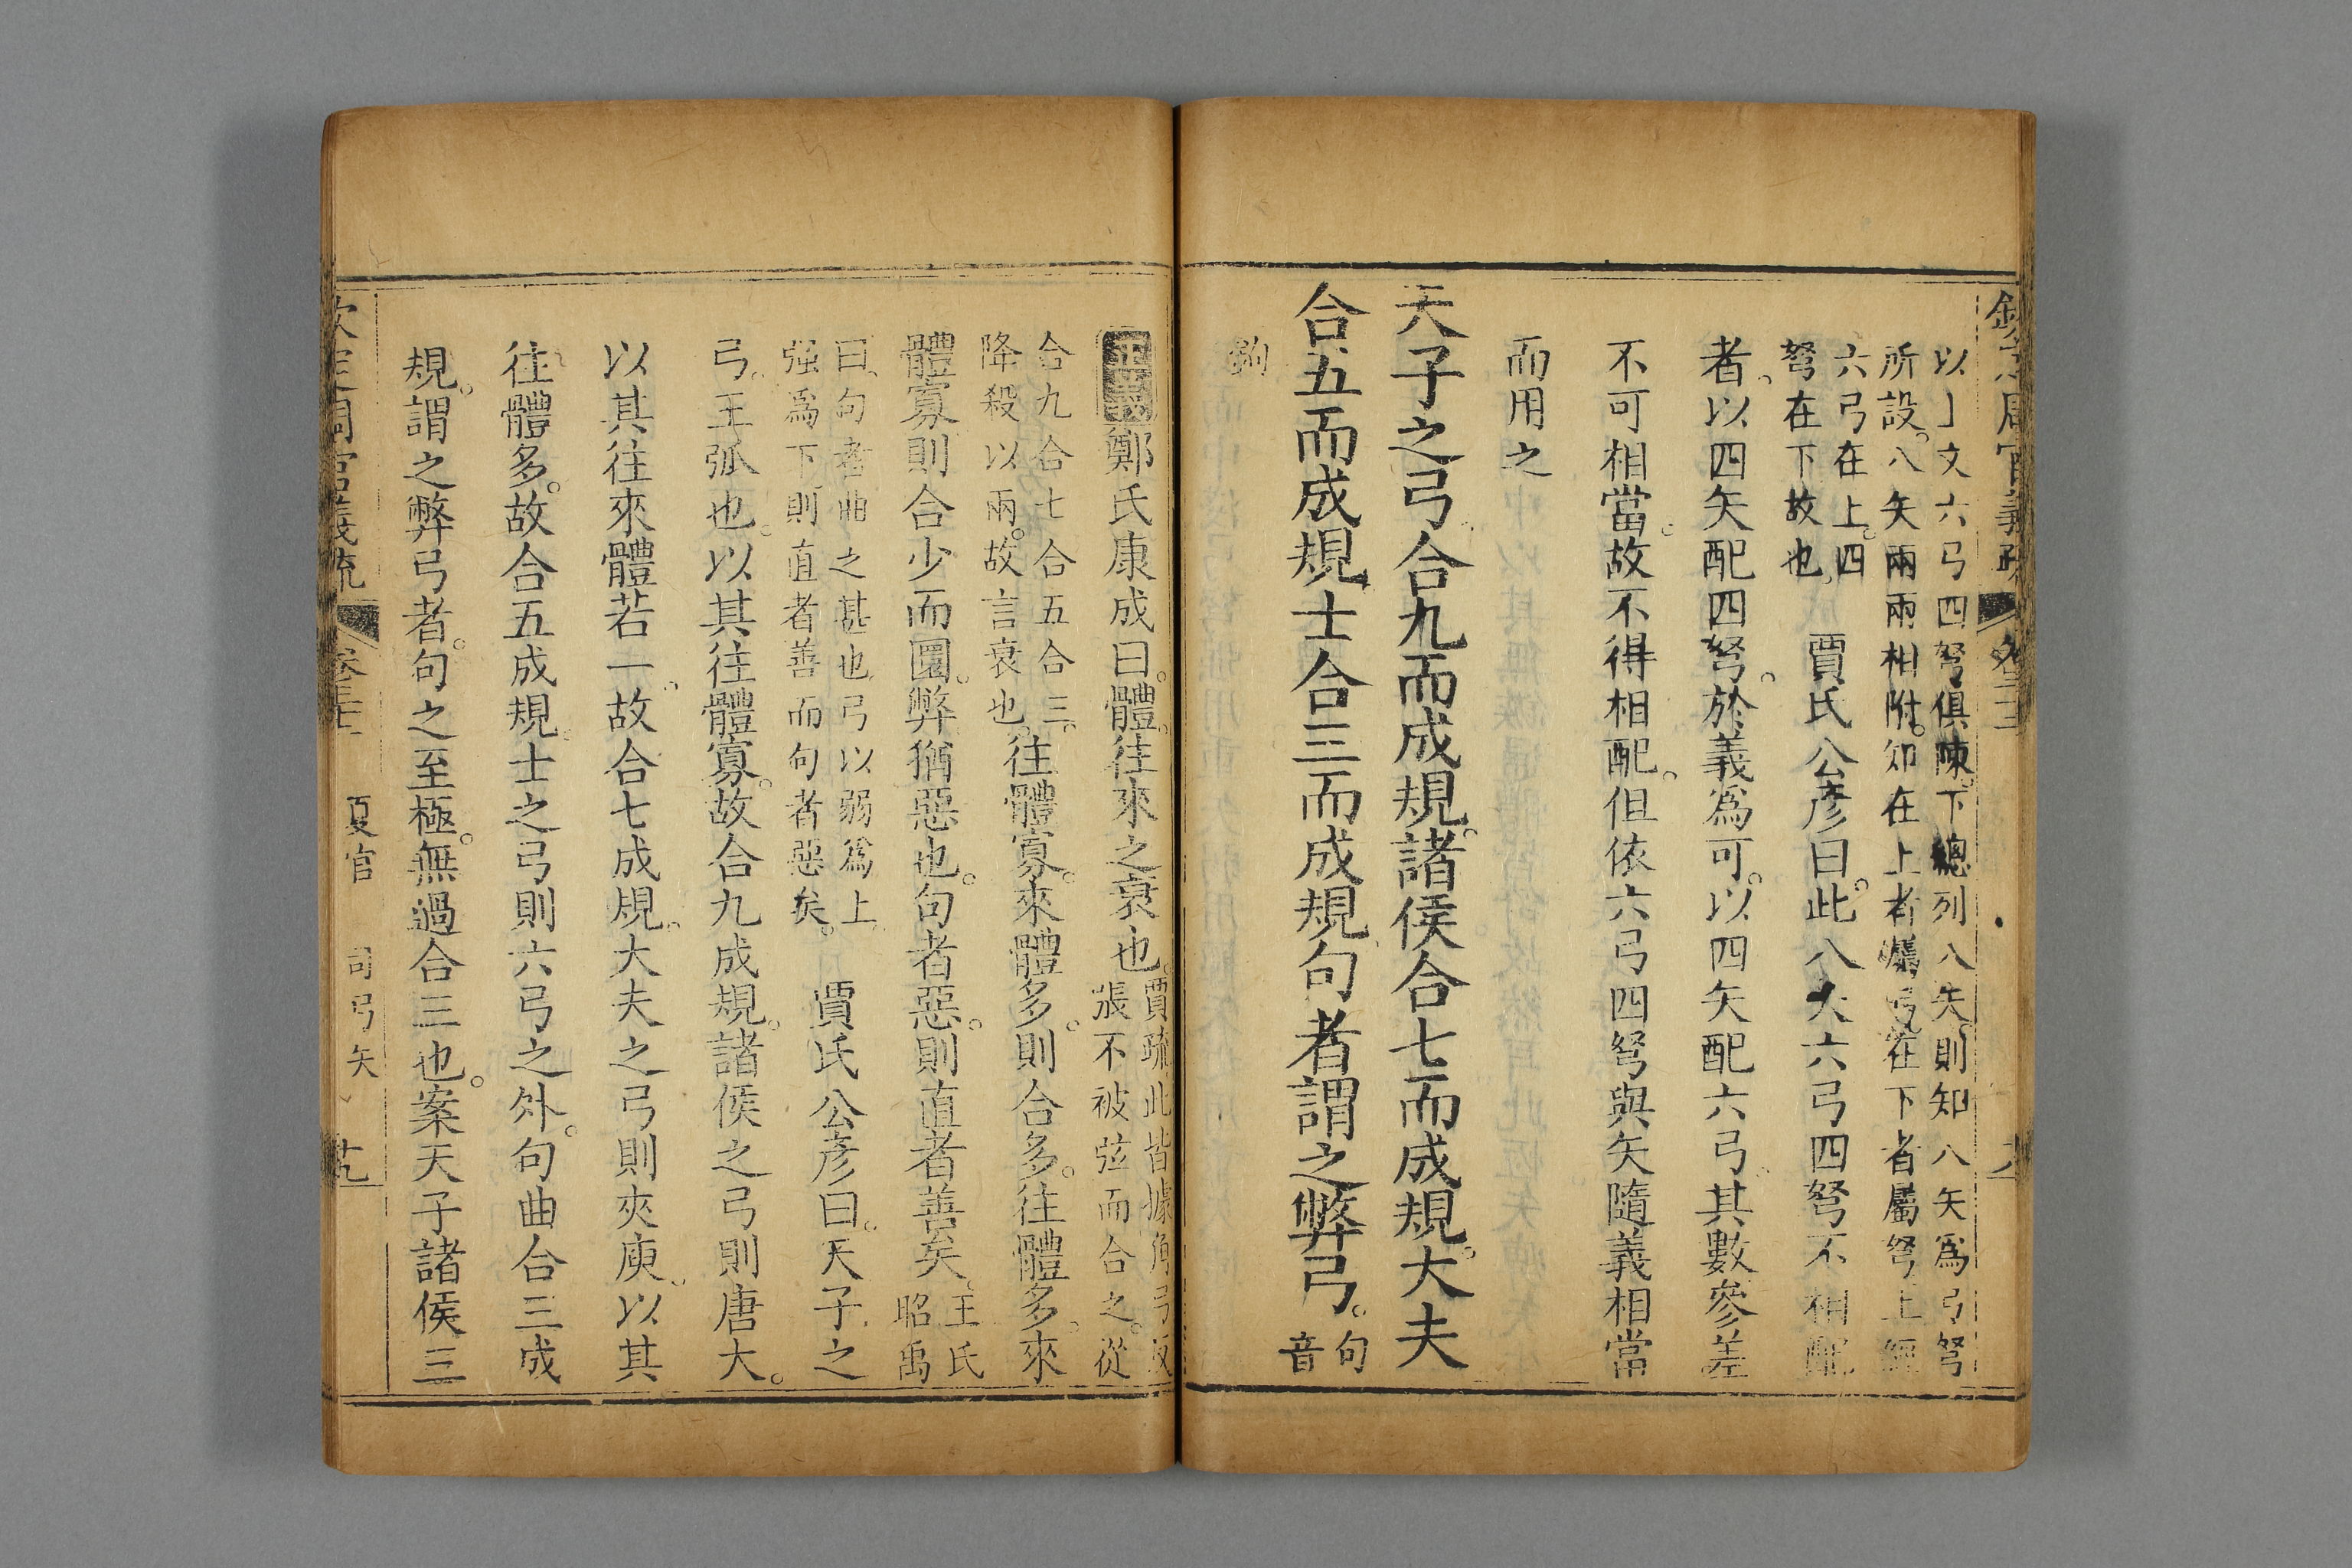 欽定周官義疏 卷三十二
以上文六弓四弩俱陳。下總列八矢。則知八矢為弓弩
所設。八矢兩兩相附。知在上者屬弓。在下者屬弩。上經
六弓在上。四
弩在下故也。
賈氏公彥曰。此八矢六弓四弩不相配
者。以四矢配四弩。於義為可。以四矢配六弓。其數參差
不可相當。故不得相配。但依六弓四弩與矢隨義相當
而用之
天子之弓。合九而成規。諸侯合七而成規。大夫
合五而成規。士合三而成規。句者謂之弊弓。句
音
鉤
正義鄭氏康成曰。體。往來之衰也。賈疏此皆據角弓反
張不被弦而合之。從
合九合七合五合三。
降殺以兩。故言衰也。
往體寡。來體多。則合多。往體多。來
體寡。則合少而圜。弊猶惡也。句者惡。則直者善矣。王氏
昭禹
曰。句者曲之甚也。弓以弱為上。
強為下。則直者善而句者惡矣。
賈氏公彥曰。天子之
弓。王弧也。以其往體寡。故合九成規。諸侯之弓則唐大。
以其往來體若一。故合七成規。大夫之弓則夾庾。以其
往體多。故合五成規。士之弓則六弓之外。句曲合三成
規。謂之弊弓者。句之至極。無過合三也。案天子諸侯三
欽定周官義疏 卷三十二 夏官 司弓矢 十九